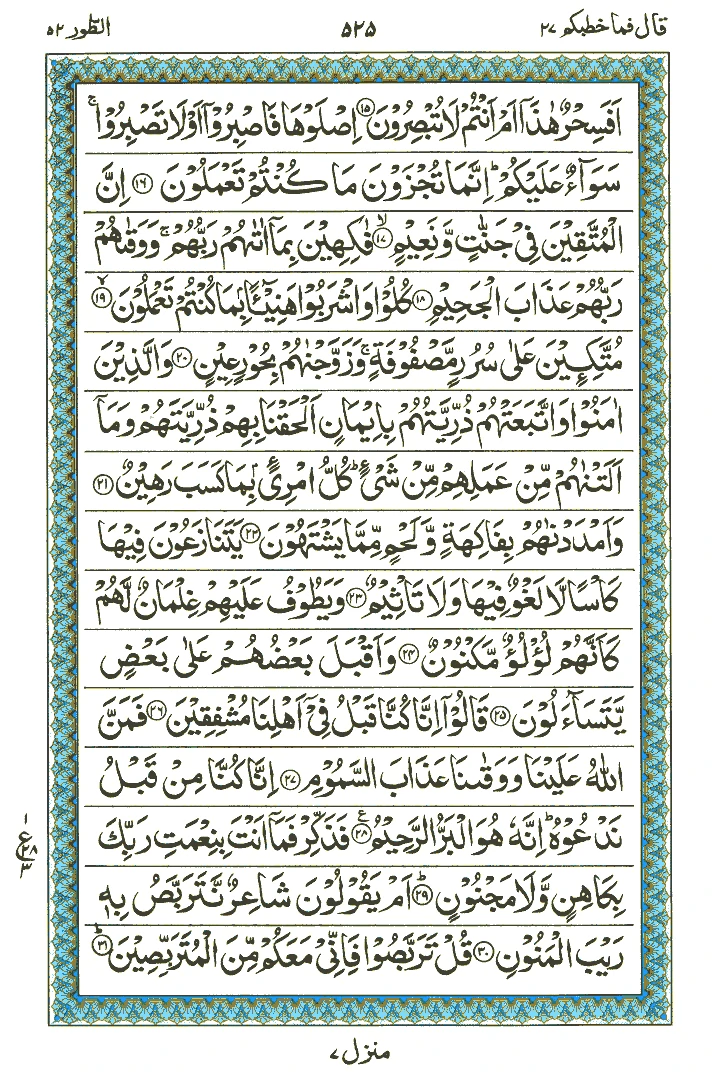 قال فما خطبكم ٢٧ ٥٢٥ الطور ٥٢
اَفَسِحْرٌ هٰذَآ اَمْ اَنْتُمْ لَا تُبْصِرُوْنَ ⁠۝١٥ اِصْلَوْهَا فَاصْبِرُوْٓا اَوْ لَا تَصْبِرُوْا ۚ
سَوَآءٌ عَلَيْكُمْ ؕ اِنَّمَا تُجْزَوْنَ مَا كُنْتُمْ تَعْمَلُوْنَ ۝١٦ اِنَّ
الْمُتَّقِيْنَ فِيْ جَنّٰتٍ وَّنَعِيْمٍ ۙ۝١٧ فٰكِهِيْنَ بِمَآ اٰتٰىهُمْ رَبُّهُمْ ۚ وَوَقٰىهُمْ
رَبُّهُمْ عَذَابَ الْجَحِيْمِ ۝١٨ كُلُوْا وَاشْرَبُوْا هَنِيْٓـًٔا بِمَا كُنْتُمْ تَعْمَلُوْنَ ۙ۝١٩
مُتَّكِـِٕيْنَ عَلٰى سُرُرٍ مَّصْفُوْفَةٍ ۚ وَزَوَّجْنٰهُمْ بِحُوْرٍ عِيْنٍ ۝٢٠ وَالَّذِيْنَ
اٰمَنُوْا وَاتَّبَعَتْهُمْ ذُرِّيَّتُهُمْ بِاِيْمَانٍ اَلْحَقْنَا بِهِمْ ذُرِّيَّتَهُمْ وَمَآ
اَلَتْنٰهُمْ مِّنْ عَمَلِهِمْ مِّنْ شَيْءٍ ؕ كُلُّ امْرِئٍۢ بِمَا كَسَبَ رَهِيْنٌ ۝٢١
وَاَمْدَدْنٰهُمْ بِفَاكِهَةٍ وَّلَحْمٍ مِّمَّا يَشْتَهُوْنَ ۝٢٢ يَتَنَازَعُوْنَ فِيْهَا
كَاْسًا لَّا لَغْوٌ فِيْهَا وَلَا تَاْثِيْمٌ ۝٢٣ وَيَطُوْفُ عَلَيْهِمْ غِلْمَانٌ لَّهُمْ
كَاَنَّهُمْ لُؤْلُؤٌ مَّكْنُوْنٌ ۝٢٤ وَاَقْبَلَ بَعْضُهُمْ عَلٰى بَعْضٍ
يَّتَسَآءَلُوْنَ ۝٢٥ قَالُوْٓا اِنَّا كُنَّا قَبْلُ فِيْٓ اَهْلِنَا مُشْفِقِيْنَ ۝٢٦ فَمَنَّ
اللّٰهُ عَلَيْنَا وَوَقٰىنَا عَذَابَ السَّمُوْمِ ۝٢٧ اِنَّا كُنَّا مِنْ قَبْلُ
نَدْعُوْهُ ؕ اِنَّهٗ هُوَ الْبَرُّ الرَّحِيْمُ ۝٢٨ ع فَذَكِّرْ فَمَآ اَنْتَ بِنِعْمَتِ رَبِّكَ
١ ع ٢٨ ٣
بِكَاهِنٍ وَّلَا مَجْنُوْنٍ ؕ۝٢٩ اَمْ يَقُوْلُوْنَ شَاعِرٌ نَّتَرَبَّصُ بِهٖ
رَيْبَ الْمَنُوْنِ ۝٣٠ قُلْ تَرَبَّصُوْا فَاِنِّيْ مَعَكُمْ مِّنَ الْمُتَرَبِّصِيْنَ ؕ۝٣١
منزل ٧